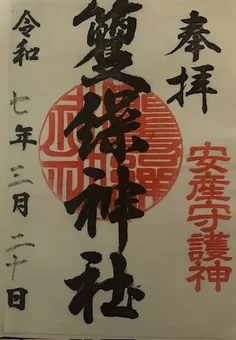 奉拝
安産守護神
神社
令和七年三月二十日